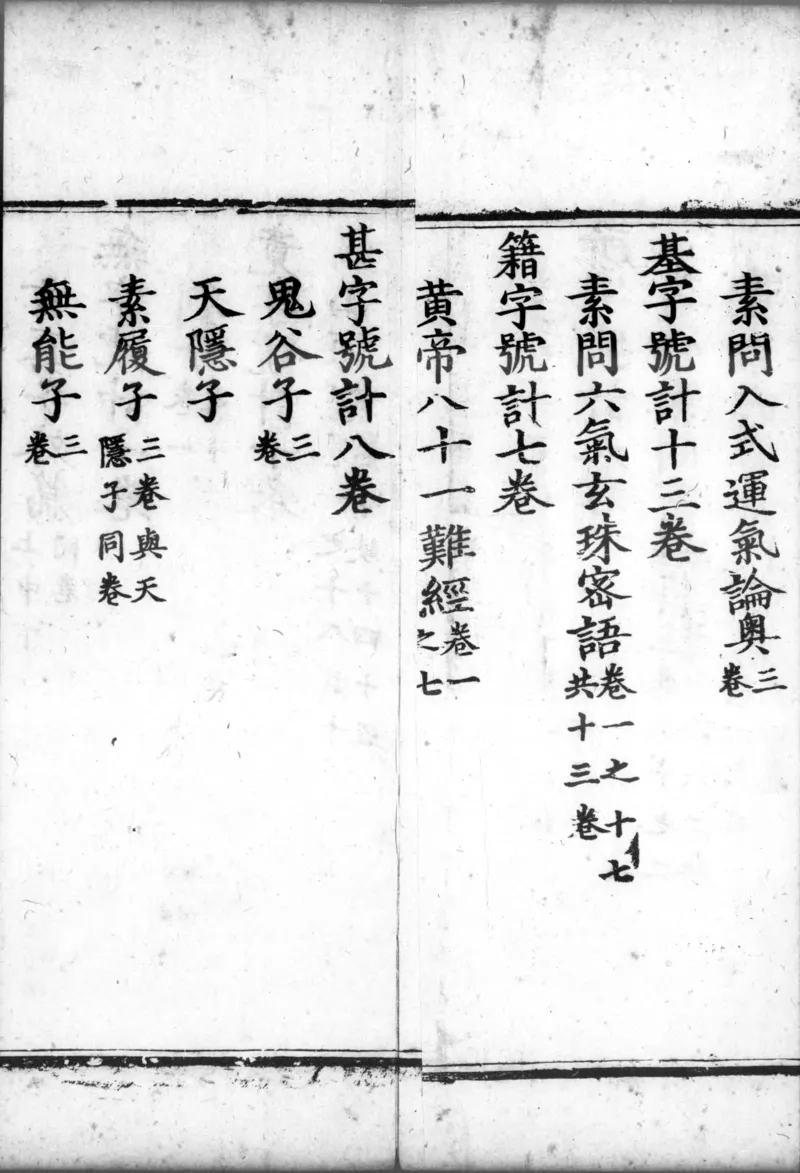 素問入式運氣論奥三卷
基字號計十三卷
素問六氣玄珠密語卷一之十七共十三卷
籍字號計七卷
黄帝八十一難經卷一之七
甚字號計八卷
鬼谷子三卷
天隱子
素履子三卷與天隱子同卷
無能子三卷